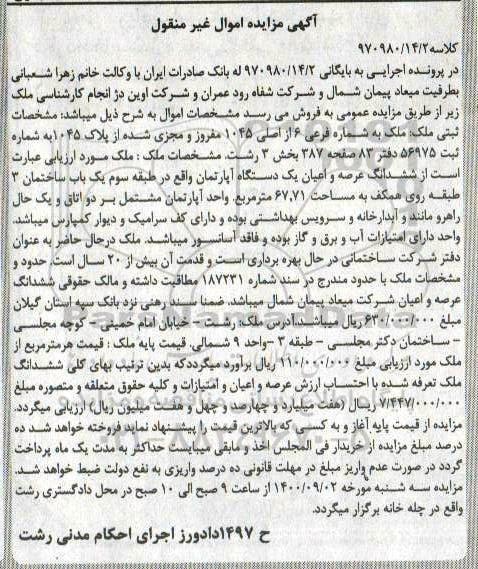 آگهی مزایده اموال غیر منقول
کلاسه ۹۷۰۹۸۰/۱۴/۲
در پرونده اجرایی به بایگانی ۹۷۰۹۸۰/۱۴/۲ له بانک صادرات ایران با وکالت خانم زهرا شعبانی
بطرفیت میعاد پیمان شمال و شرکت شفاه رود عمران و شرکت اوین دژ انجام کارشناسی ملک
زیر از طریق مزایده عمومی به فروش می رسد مشخصات اموال به شرح ذیل میباشد: مشخصات
ثبتی ملک: ملک به شماره فرعی ۶ از اصلی ۱۰۴۵ مفروز و مجزی شده از پلاک ۱۰۴۵به شماره
ثبت ۵۶۹۷۵ دفتر ۸۳ صفحه ۳۸۷ بخش ۳ رشت. مشخصات ملک : ملک مورد ارزیابی عبارت
است از ششدانگ عرصه و اعیان یک دستگاه آپارتمان واقع در طبقه سوم یک باب ساختمان ۳
طبقه روی همکف به مساحت ۶۷,۷۱ مترمربع. واحد آپارتمان مشتمل بر دو اتاق و یک حال
راهرو مانند و آبدارخانه و سرویس بهداشتی بوده و دارای کف سرامیک و دیوار کمپارس میباشد.
واحد دارای امتیازات آب و برق و گاز بوده و فاقد آسانسور میباشد. ملک درحال حاضر به عنوان
دفتر شرکت ساختمانی در حال بهره برداری است و قدمت آن بیش از ۲۰ سال است. حدود و
مشخصات ملک با حدود مندرج در سند شماره ۱۸۷۲۳۱ مطاقبت داشته و مالک حقوقی ششدانگ
عرصه و اعیان شرکت میعاد پیمان شمال میباشد. ضمنا سند رهنی نزد بانک سپه استان گیلان
مبلغ ۶۳۰/۰۰۰/۰۰۰ ریال میباشد.آدرس ملک: رشت- خیابان امام خمینی- کوچه مجلسی
- ساختمان دکتر مجلسی - طبقه ۳ -واحد ۹ شمالی. قیمت پایه ملک : قیمت هرمترمربع از
ملک مورد ارزیابی مبلغ ۱۱۰/۰۰۰/۰۰۰ ریال برآورد میگرددکه بدین ترتیب بهای کلی ششدانگ
ملک تعرفه شده با احتساب ارزش عرصه و اعیان و امتیازات و کلیه حقوق متعلقه و متصوره مبلغ
۷/۴۴۷/۰۰۰/۰۰۰ ریال (هفت میلیارد و چهارصد و چهل و هفت میلیون ریال) ارزیابی میگردد.
مزایده از قیمت پایه آغاز و به کسی که بالاترین قیمت را پیشنهاد نماید فروخته خواهد شد ده
درصد مبلغ مزایده از خریدار فی المجلس اخذ و مابقی میبایست حداکثر به مدت یک ماه پرداخت
گردد در صورت عدم واریز مبلغ در مهلت قانونی ده درصد واریزی به نفع دولت ضبط خواهد شد.
مزایده سه شنبه مورخه ۱۴۰۰/۰۹/۰۲ از ساعت ۹ صبح الی ۱۰ صبح در محل دادگستری رشت
واقع در چله خانه برگزار میگردد.
ح ۱۴۹۷دادورز اجرای احکام مدنی رشت